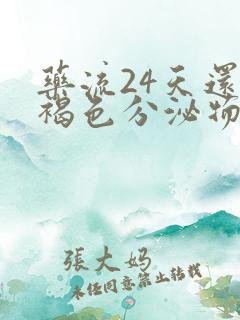 藥流24天還
褐色分泌物
張大媽
未經同意禁止轉載